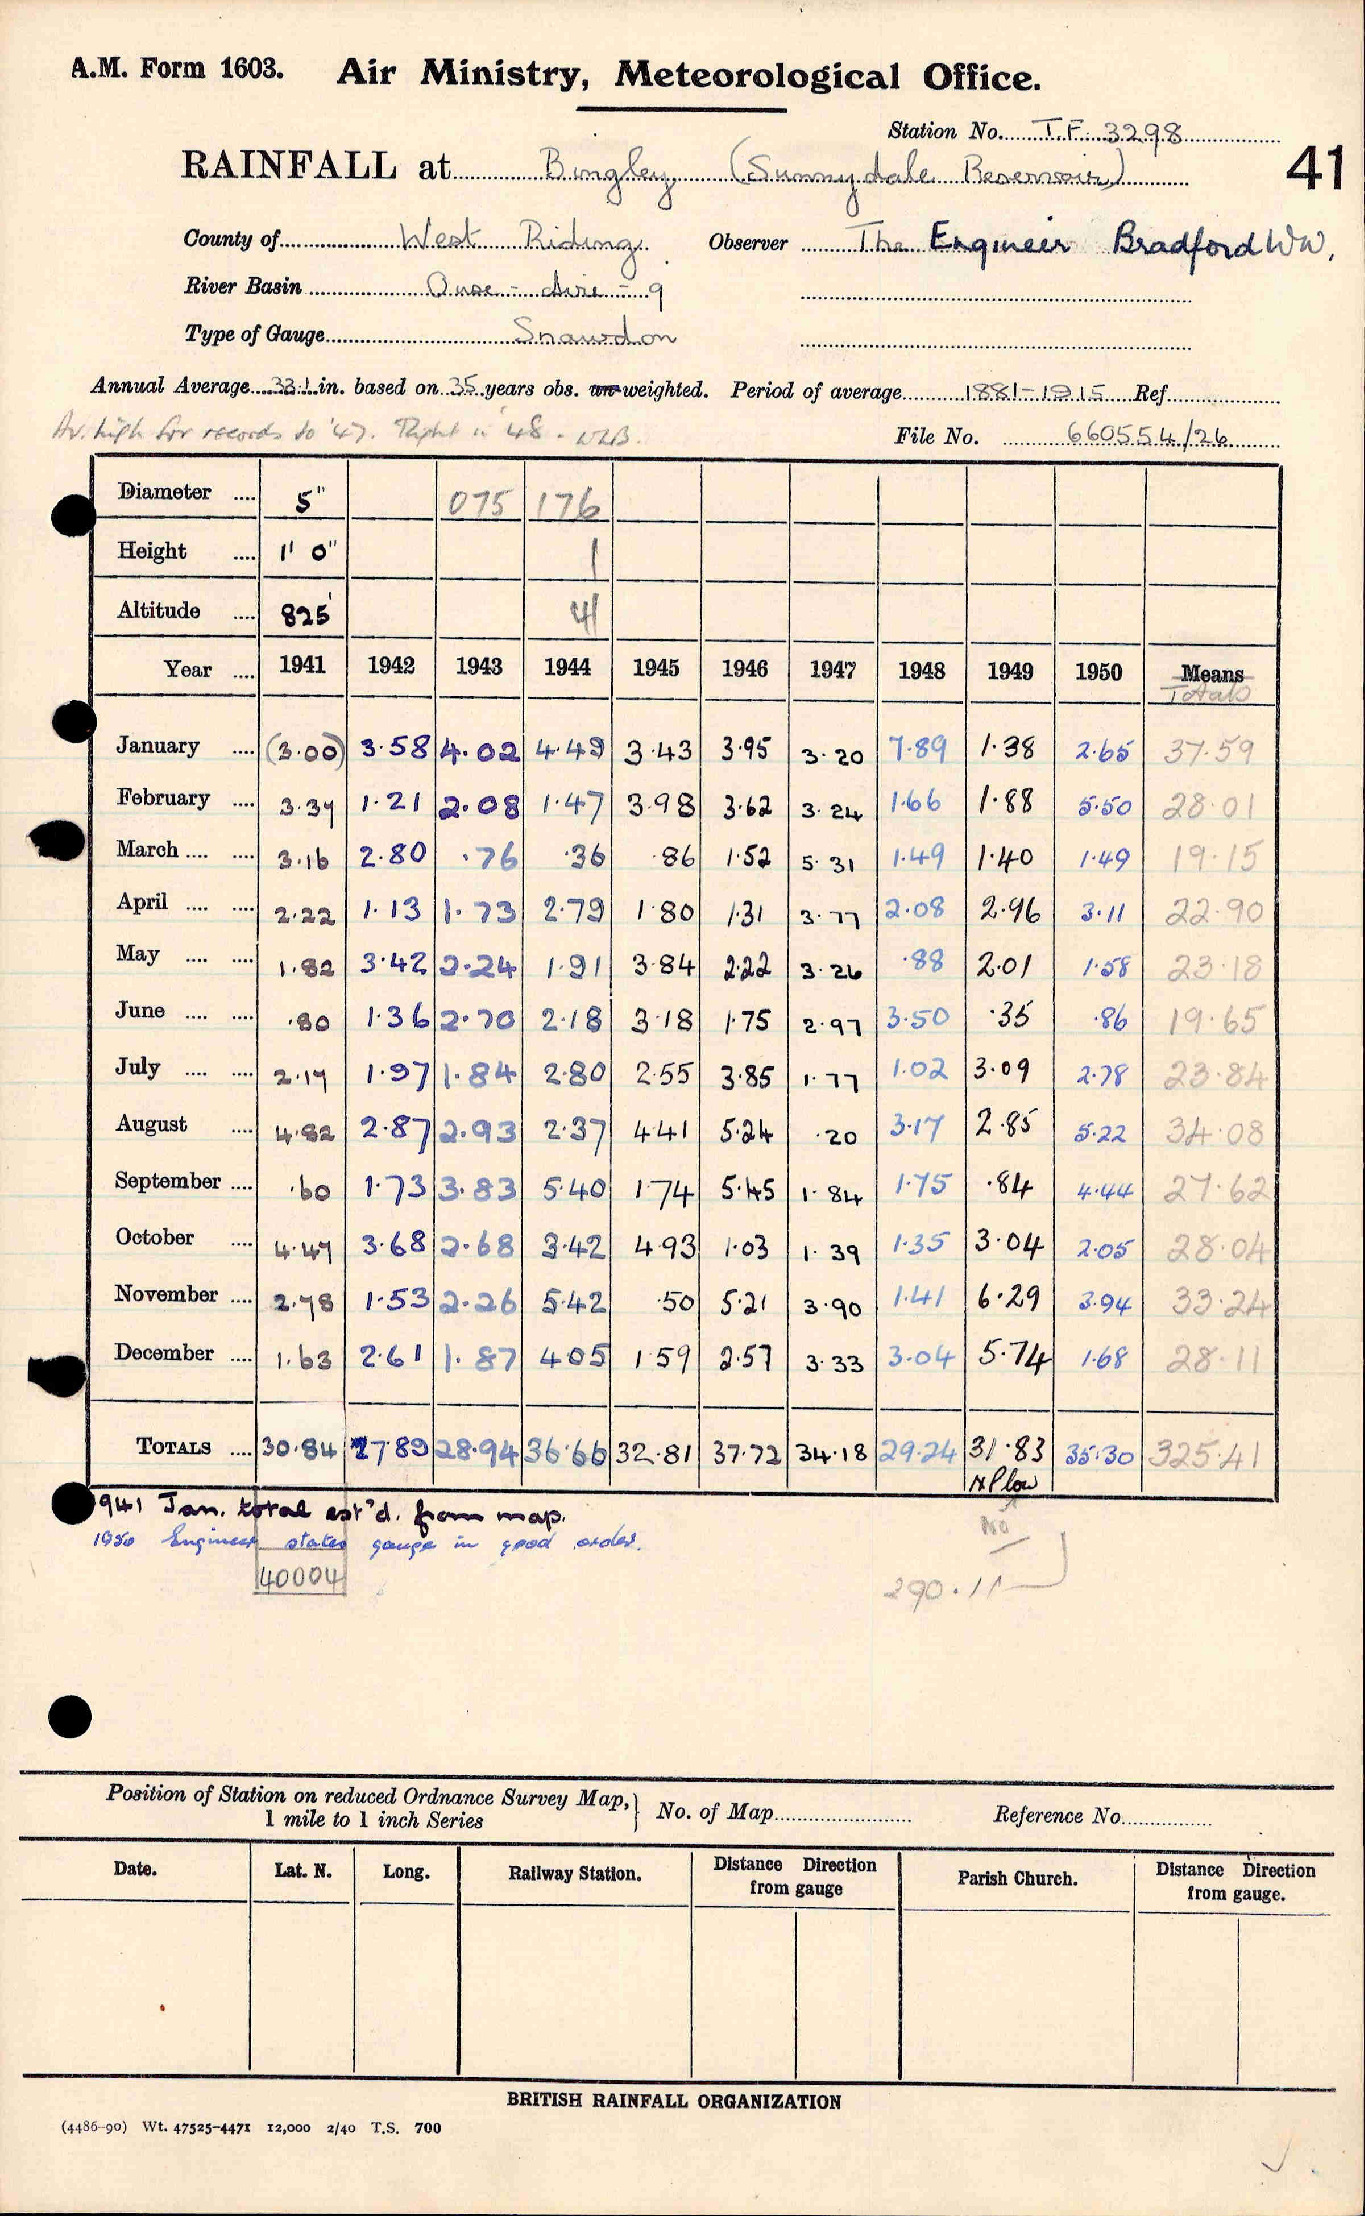 A.M. Form 1603. Air Ministry, Meteorological Office.
Station No. T.F. 3298
RAINFALL at Bingley (Sunnydale Reservoir) 41
County of West Riding Observer The Engineer Bradford WW.
River Basin Ouse - Aire - 9
Type of Gauge Snowdon
Annual Average 33.1 in. based on 35 years obs. un-weighted. Period of average 1881-1915 Ref.
Av. high for records to '47. Right in '48.
File No. 660554/26
Diameter .... 5" 075 176
Height .... 1' 0" 1
Altitude .... 825' 41
Year .... 1941 1942 1943 1944 1945 1946 1947 1948 1949 1950 Means
Totals
January .... (3.00) 3.58 4.02 4.49 3.43 3.95 3.20 7.89 1.38 2.65 37.59
February .... 3.37 1.21 2.08 1.47 3.98 3.62 3.24 1.66 1.88 5.50 28.01
March .... .... 3.16 2.80 .76 .36 .86 1.52 5.31 1.49 1.40 1.49 19.15
April .... .... 2.22 1.13 1.73 2.79 1.80 1.31 3.77 2.08 2.96 3.11 22.90
May .... .... 1.82 3.42 2.24 1.91 3.84 2.22 3.26 .88 2.01 1.58 23.18
June .... .... .80 1.36 2.70 2.18 3.18 1.75 2.97 3.50 .35 .86 19.65
July .... .... 2.17 1.97 1.84 2.80 2.55 3.85 1.77 1.02 3.09 2.78 23.84
August .... 4.82 2.87 2.93 2.37 4.41 5.24 .20 3.17 2.85 5.22 34.08
September .... .60 1.73 3.83 5.40 1.74 5.45 1.84 1.75 .84 4.44 27.62
October .... 4.47 3.68 2.68 3.42 4.93 1.03 1.39 1.35 3.04 2.05 28.04
November .... 2.78 1.53 2.26 5.42 .50 5.21 3.90 1.41 6.29 3.94 33.24
December .... 1.63 2.61 1.87 4.05 1.59 2.57 3.33 3.04 5.74 1.68 28.11
TOTALS .... 30.84 27.89 28.94 36.66 32.81 37.72 34.18 29.24 31.83 35.30 325.41
low
1941 Jan. total est'd. from map.
1950 Engineer states gauge in good order.
40004
290.11
Position of Station on reduced Ordnance Survey Map,
1 mile to 1 inch Series } No. of Map Reference No.
Date. Lat. N. Long. Railway Station. Distance Direction from gauge Parish Church. Distance Direction from gauge.
BRITISH RAINFALL ORGANIZATION
(4486-90) Wt. 47525-4471 12,000 2/40 T.S. 700